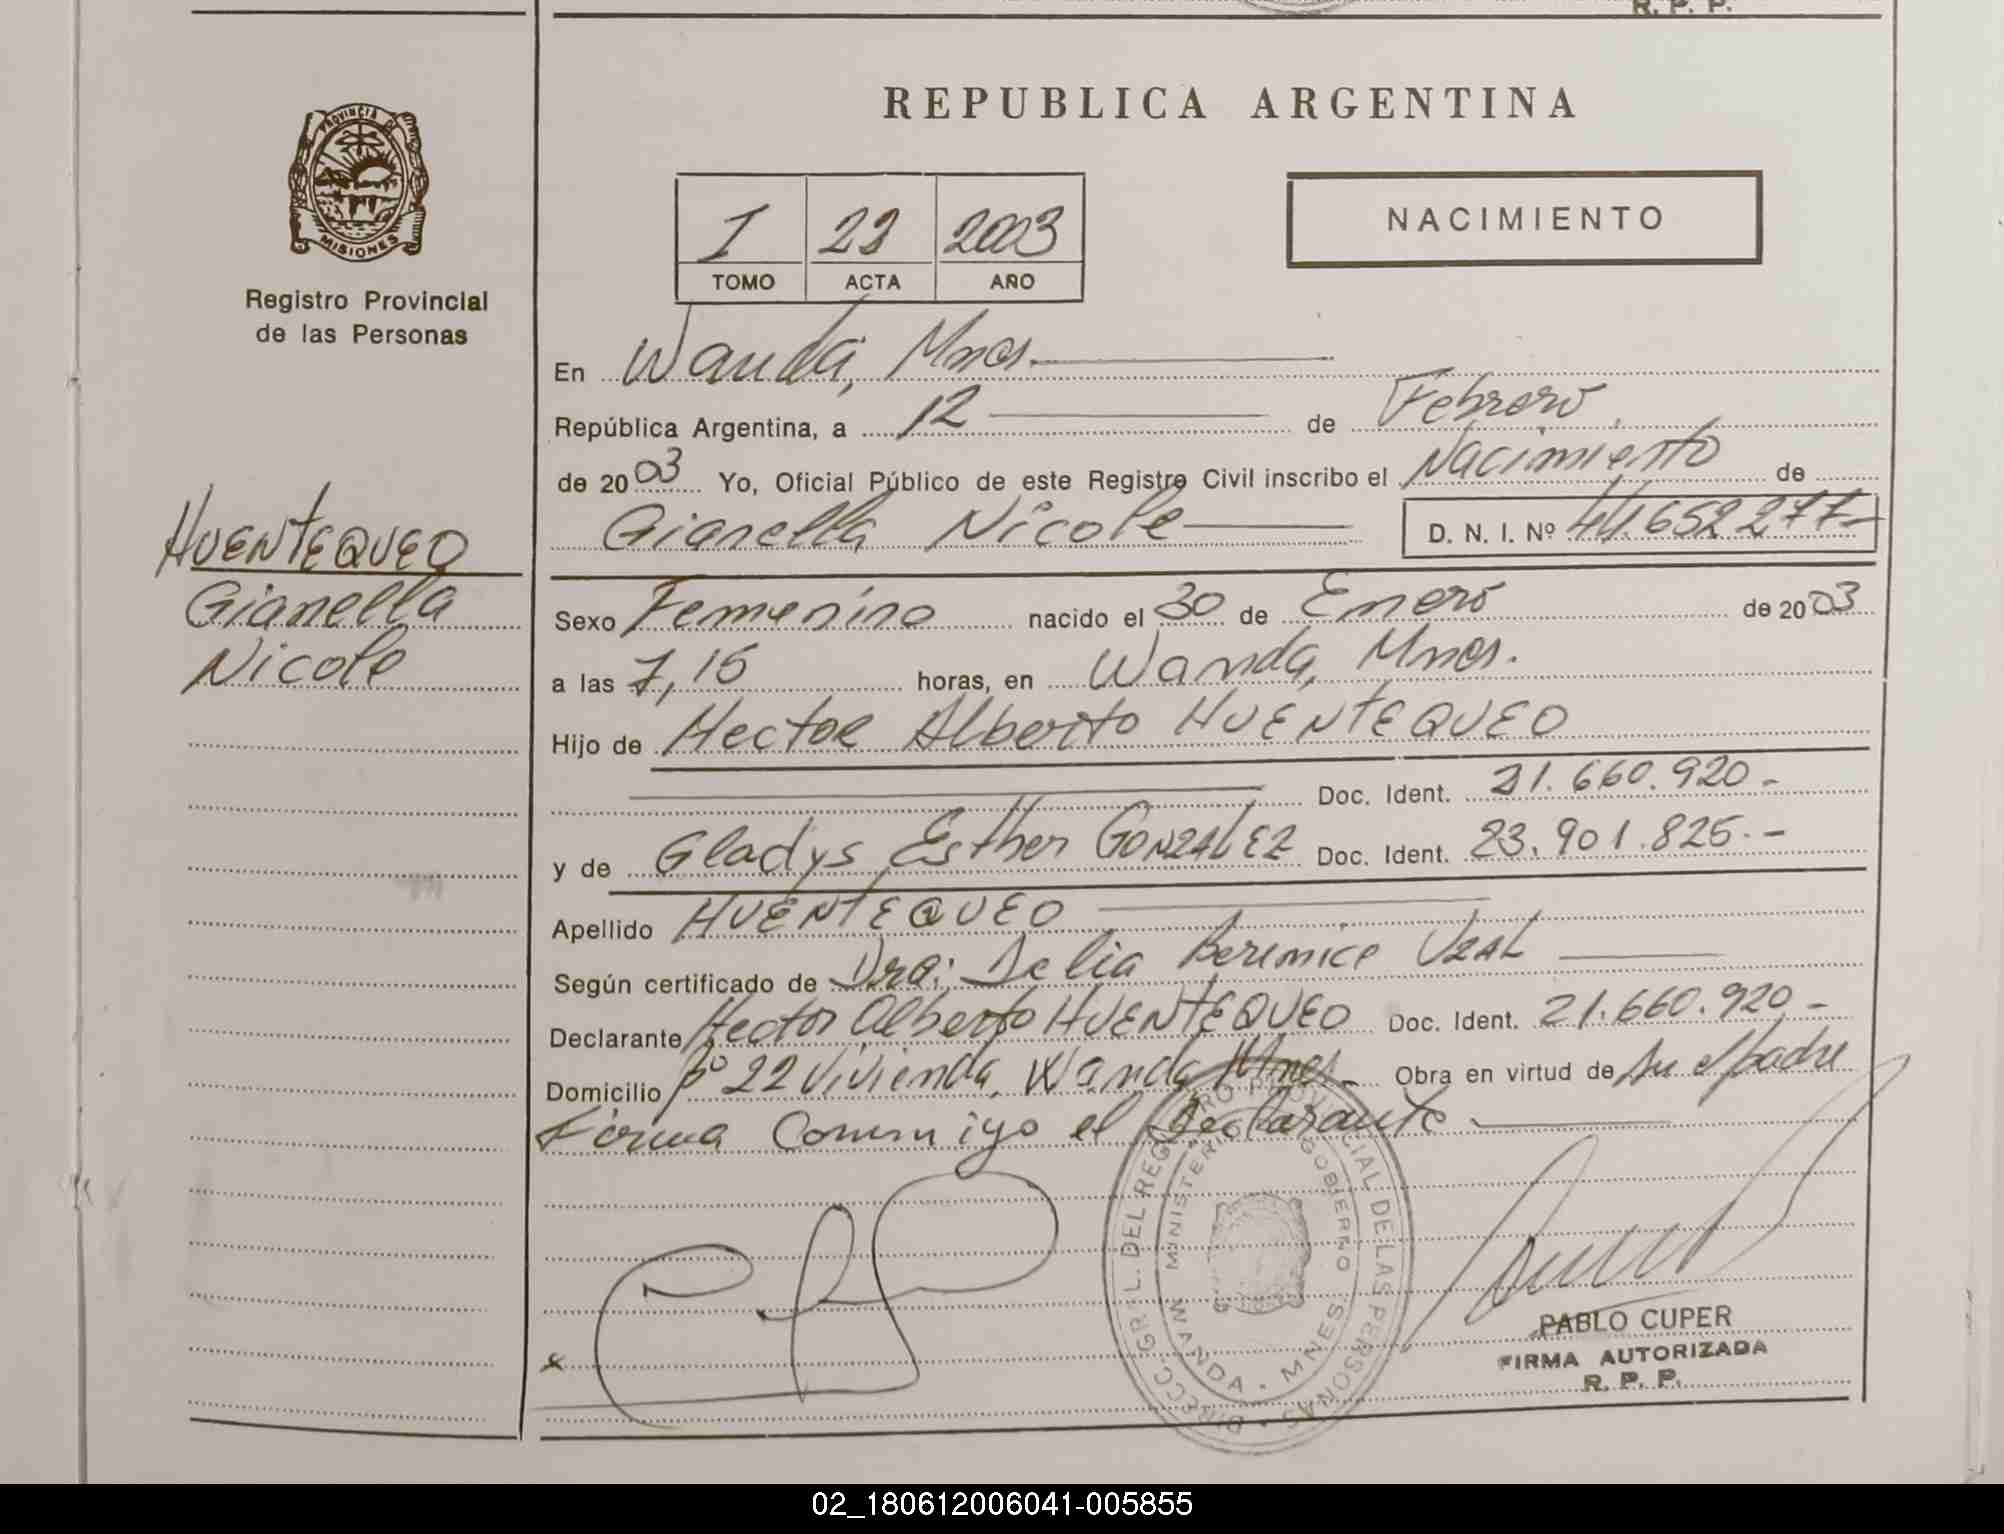 R. P. P.
PROVINCIA DE
MISIONES
Registro Provincial
de las Personas
HUENTEQUEO
Gianella
Nicole
REPUBLICA ARGENTINA
I 23 2003
TOMO ACTA AÑO
NACIMIENTO
En Wanda, Mnes.
República Argentina, a 12 de Febrero
de 2003 Yo, Oficial Público de este Registro Civil inscribo el Nacimiento de
Gianella Nicole D. N. I. Nº 44.652277-
Sexo Femenino nacido el 30 de Enero de 2003
a las 7,15 horas, en Wanda, Mnes.
Hijo de Hector Alberto HUENTEQUEO
Doc. Ident. 21.660.920-
y de Gladys Esther GONZALEZ Doc. Ident. 23.901.825.-
Apellido HUENTEQUEO
Según certificado de Dra: Delia Berenice UZAL
Declarante Hector Alberto HUENTEQUEO Doc. Ident. 21.660.920-
Domicilio Bº 22 Vivienda, Wanda, Mnes. Obra en virtud de Su el padre
Firma Conmigo el Declarante
x
DIRECC. GRAL. DEL REGISTRO PROVINCIAL DE LAS PERSONAS
MINISTERIO GOBIERNO
WANDA - MNES.
PABLO CUPER
FIRMA AUTORIZADA
R. P. P.
02_180612006041-005855